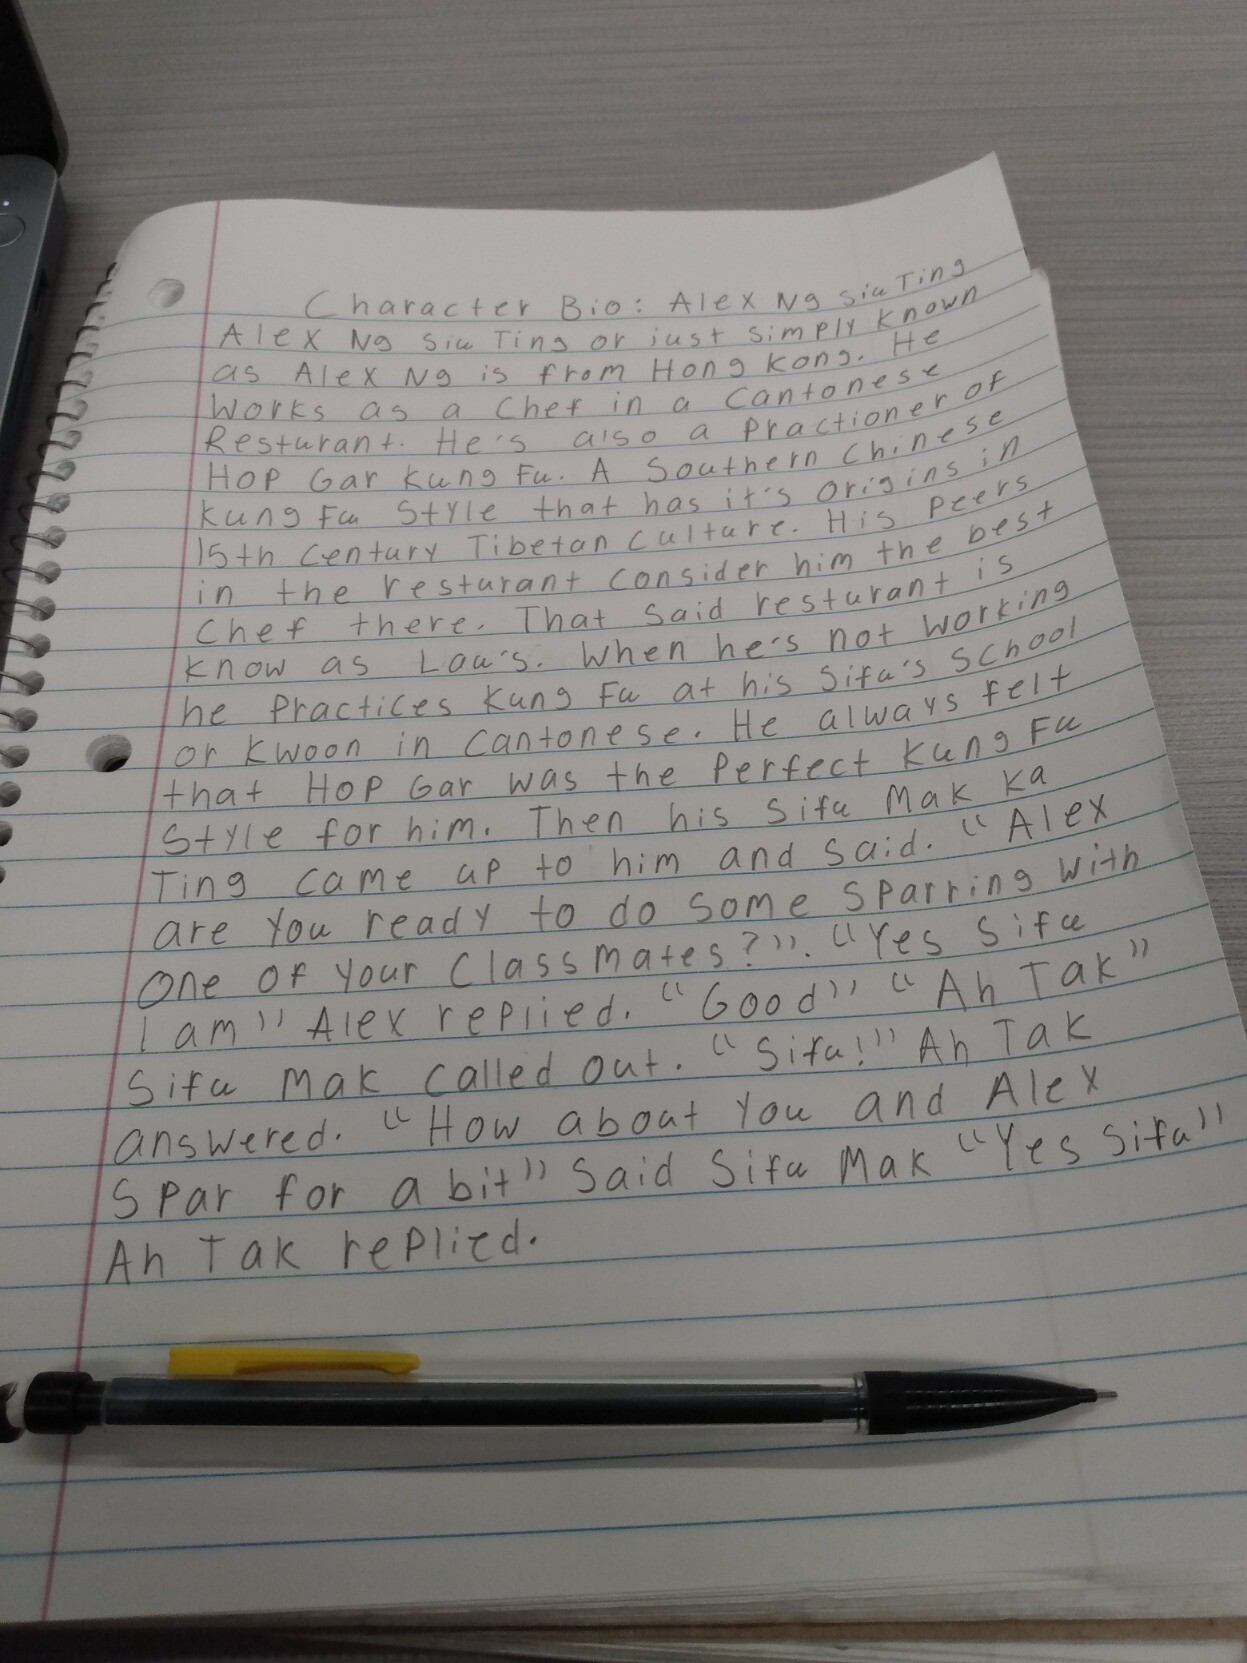 Character Bio: Alex Ng Siu Ting
Alex Ng Siu Ting or just simply known
as Alex Ng is from Hong Kong. He
works as a chef in a Cantonese
Resturant. He's also a Practioner of
Hop Gar Kung Fu. A Southern Chinese
Kung Fu Style that has it's origins in
15th Century Tibetan culture. His Peers
in the resturant consider him the best
Chef there. That said resturant is
know as Lau's. When he's not working
he Practices Kung Fu at his Sifu's School
or Kwoon in Cantonese. He always felt
that Hop Gar was the Perfect Kung Fu
Style for him. Then his Sifu Mak Ka
Ting came up to him and said. "Alex
are you ready to do some sparring with
one of your Classmates?". "Yes Sifu
I am" Alex replied. "Good" "Ah Tak"
Sifu Mak called out. "Sifu!" Ah Tak
answered. "How about you and Alex
Spar for a bit" Said Sifu Mak "Yes Sifu"
Ah Tak replied.